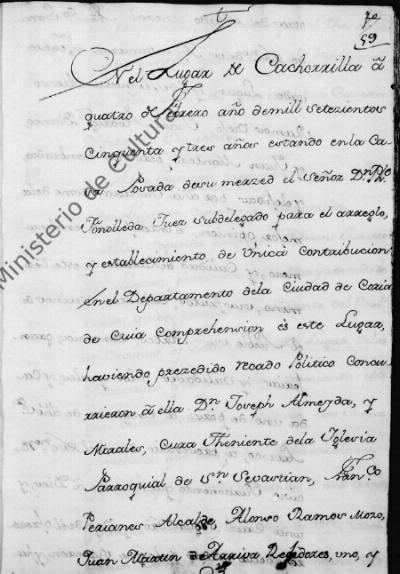 70
59
En el Lugar de Cachorrilla â
quatro de Febrero año demill setezientos
Cinquenta y tres años estando enla Ca
sa Posada desu merzed el señor Dn
Fonolleda Juez subdelegado para el arreglo,
y establecimiento de Vnica Contribucion
en el Departamento dela Ciudad de Coria
de Cuia Comprehension és este Lugar,
haviendo prezedido Recado Politico Concu
rrieron â ella Dn Joseph Almeyda, y
Morales, Cura Theniente dela Iglesia
Parroquial de Sn Sevastian, Franco
Perianes Alcalde, Alonso Ramos Mozo,
Juan Martin de Arriva Rexidores, uno, y
Ministerio de Cultura